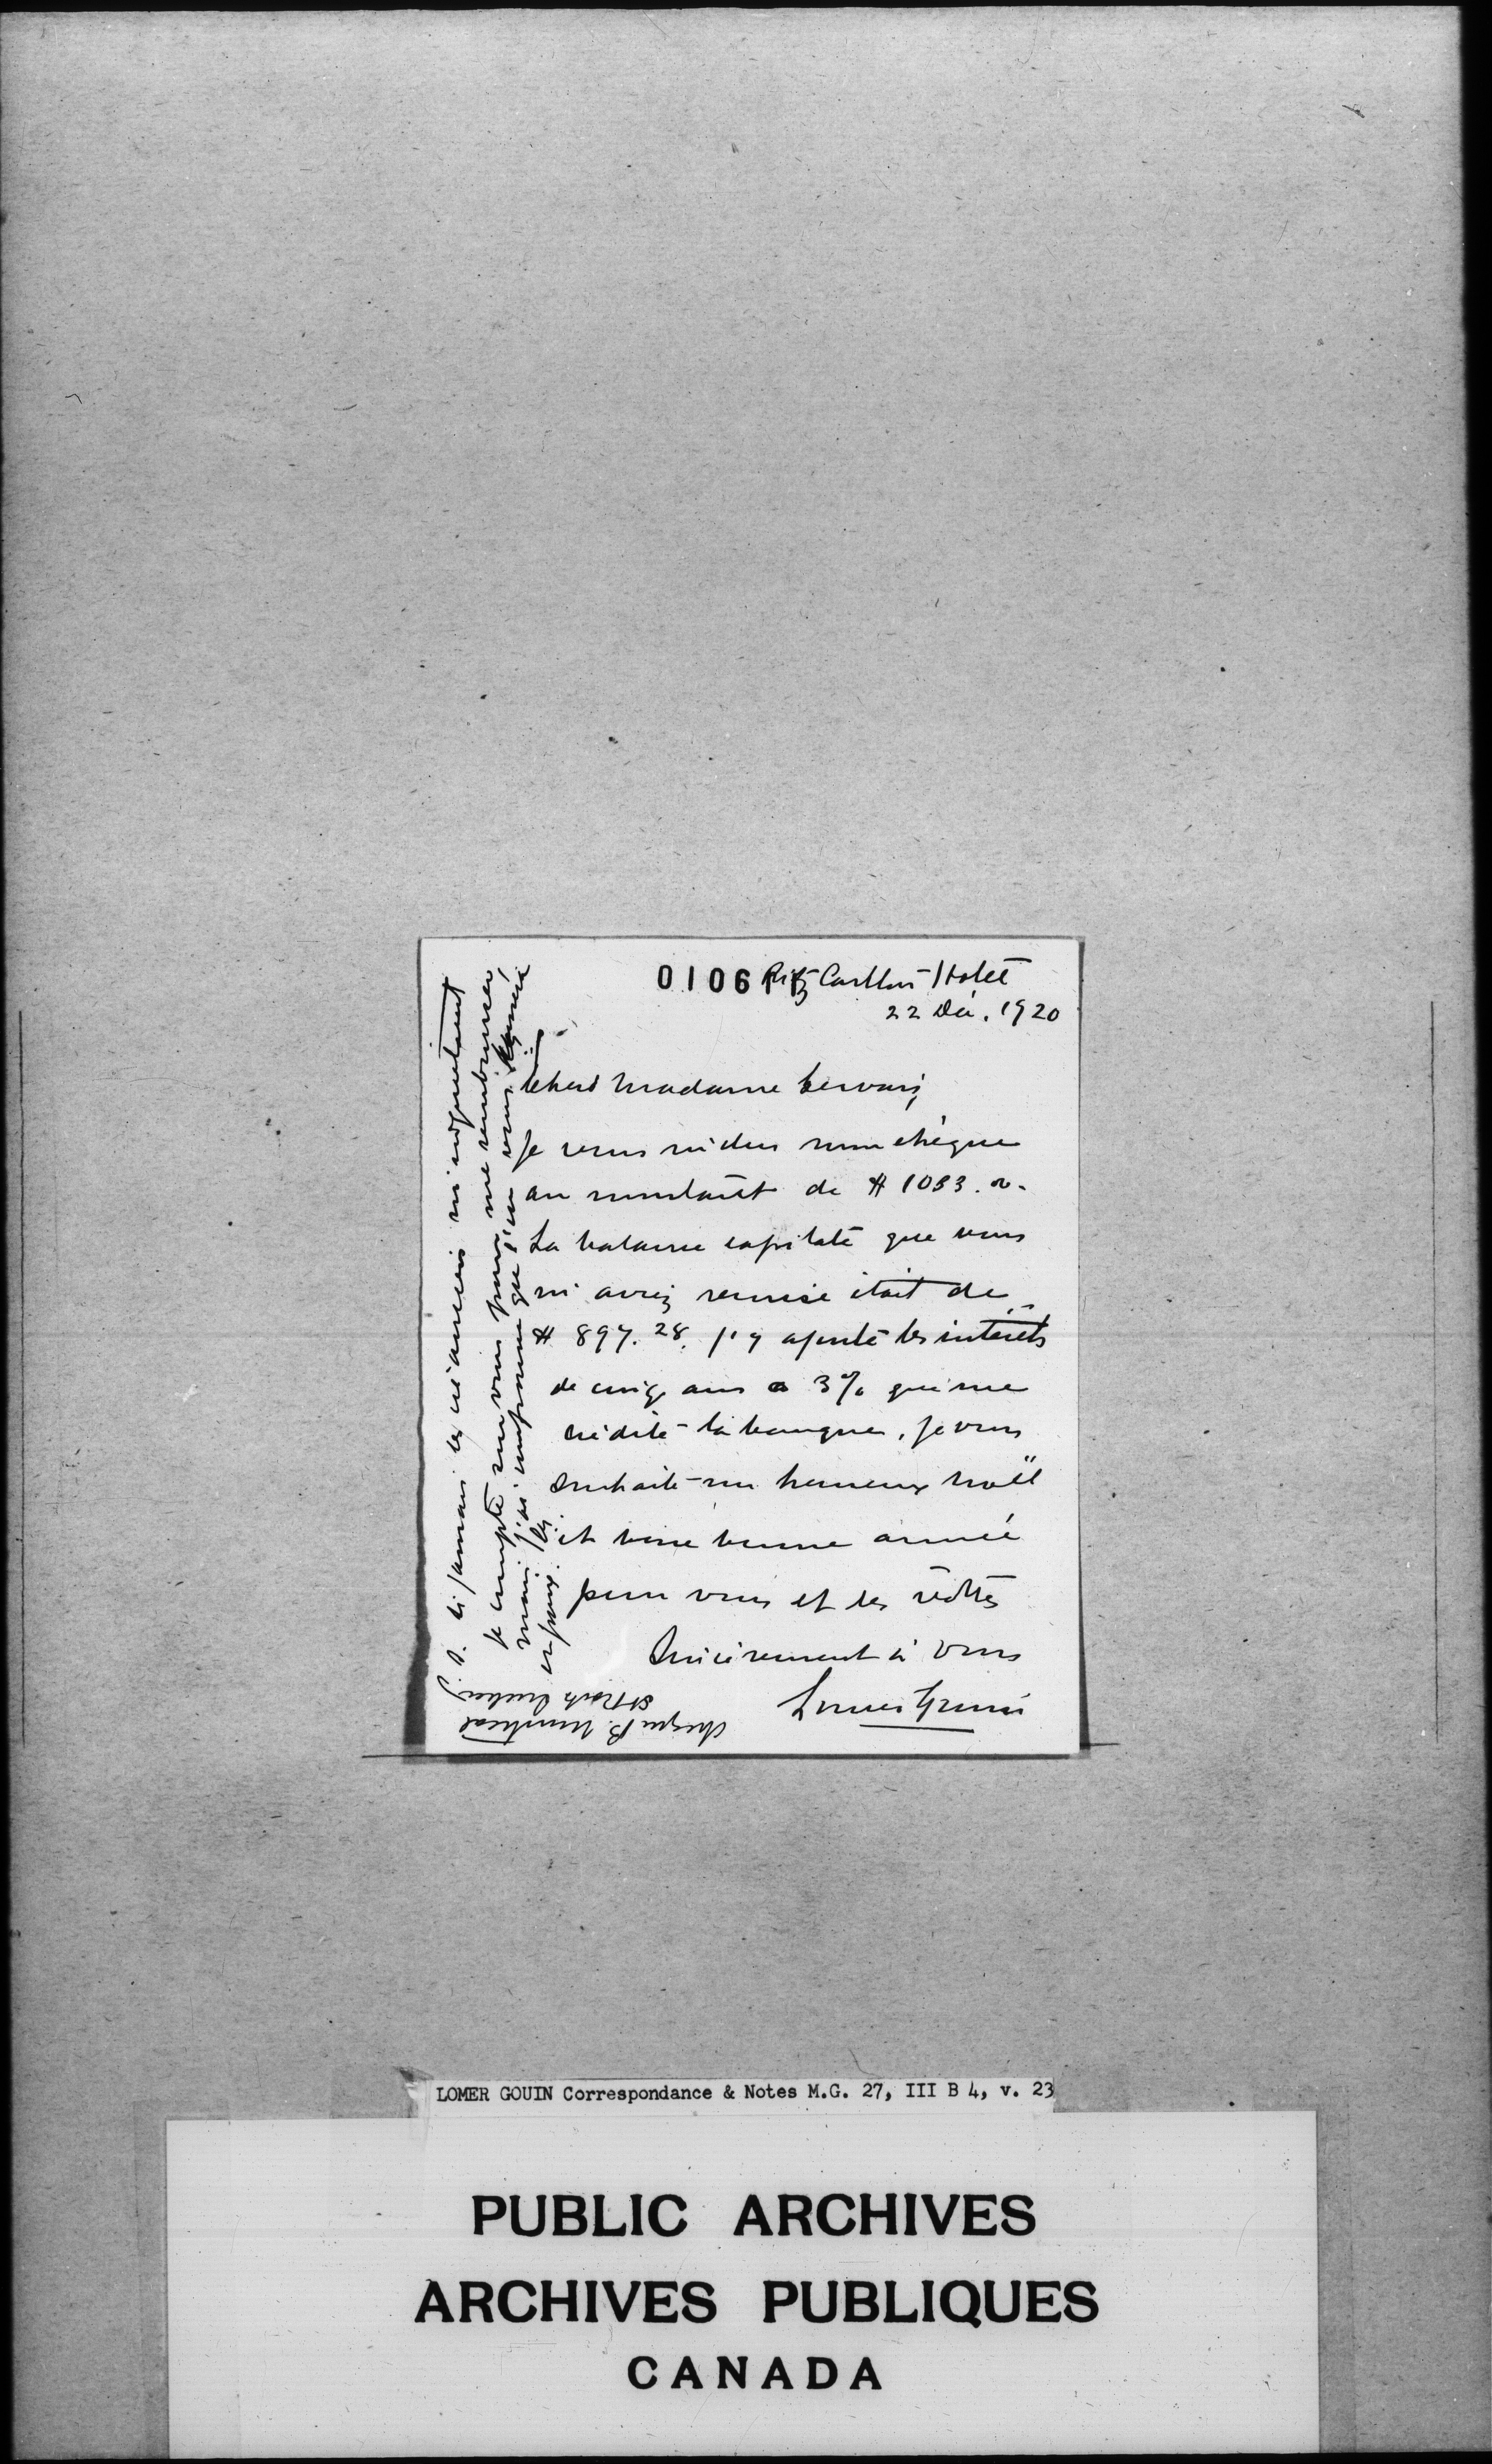 01061 Ritz Carlton Hotel
22 Déc. 1920
Chère Madame Gervais,
Je vous inclus mon chèque
au montant de $ 1033.
La balance capitale que vous
m'aviez remise était de
$ 897.28. J'y ajoute les intérêts
de cinq ans a 3% que me
crédite la banque. Je vous
souhaite un heureux Noël
et une bonne année
pour vous et les vôtres
Sincèrement à vous
Lomer Gouin
P.S. Si jamais les créanciers m'inquietaient
je compte sur vous pour me rembourser
mais j'ai comprenne que j'en serai
Cheque B. Montreal
St Roch Quebec
LOMER GOUIN Correspondance & Notes M.G. 27, III B 4, v. 23
PUBLIC ARCHIVES
ARCHIVES PUBLIQUES
CANADA